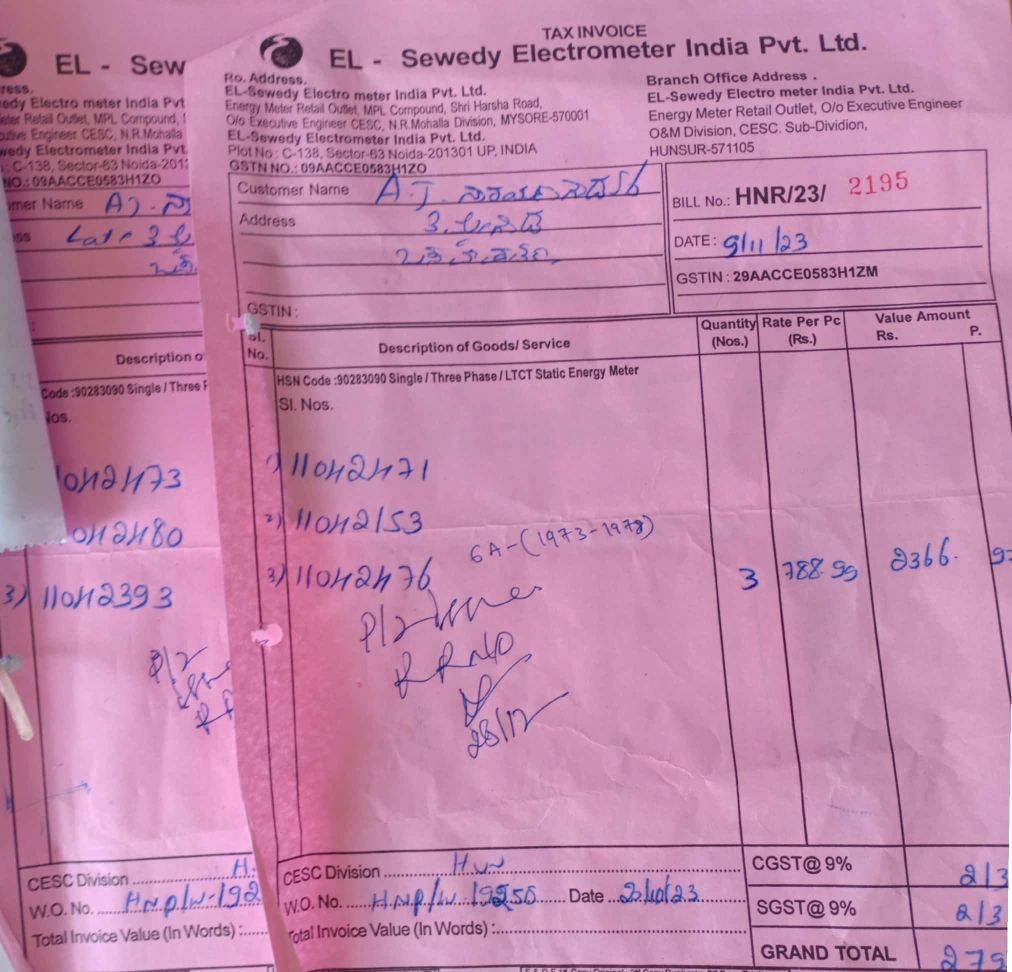 TAX INVOICE
EL - Sewedy Electrometer India Pvt. Ltd.
Ro. Address.
EL-Sewedy Electro meter India Pvt. Ltd.
Energy Meter Retail Outlet, MPL Compound, Shri Harsha Road,
O/o Executive Engineer CESC, N.R.Mohalla Division, MYSORE-570001
EL-Sewedy Electro meter India Pvt. Ltd.
Plot No : C-138, Sector-63 Noida-201301 UP, INDIA
GSTN NO.: 09AACCE0583H1ZO
Branch Office Address .
EL-Sewedy Electro meter India Pvt. Ltd.
Energy Meter Retail Outlet, O/o Executive Engineer
O&M Division, CESC. Sub-Dividion,
HUNSUR-571105
Customer Name A.J.
Address
GSTIN :
BILL No.: HNR/23/ 2195
DATE : 9/11/23
GSTIN : 29AACCE0583H1ZM
Sl. No. Description of Goods/ Service Quantity (Nos.) Rate Per Pc (Rs.) Value Amount Rs. P.
HSN Code :90283090 Single / Three Phase / LTCT Static Energy Meter
Sl. Nos.
1) 11042471
2) 11042153
6A-(1973-1978)
3) 11042476 3 788.99 2366.
28/12
CESC Division
W.O. No. Date
Total Invoice Value (In Words) :
CGST@ 9% 213
SGST@ 9% 213
GRAND TOTAL 279
EL - Sew
ress.
edy Electro meter India Pvt
eter Retail Outlet, MPL Compound,
utive Engineer CESC, N.R.Mohalla
wedy Electro meter India Pvt.
: C-138, Sector-63 Noida-201
NO.: 09AACCE0583H1ZO
mer Name A J.
ss Late
Description o
Code :90283090 Single / Three P
Nos.
1042473
042480
3) 11042393
CESC Division H.
W.O. No. HNP/W-192
Total Invoice Value (In Words) :